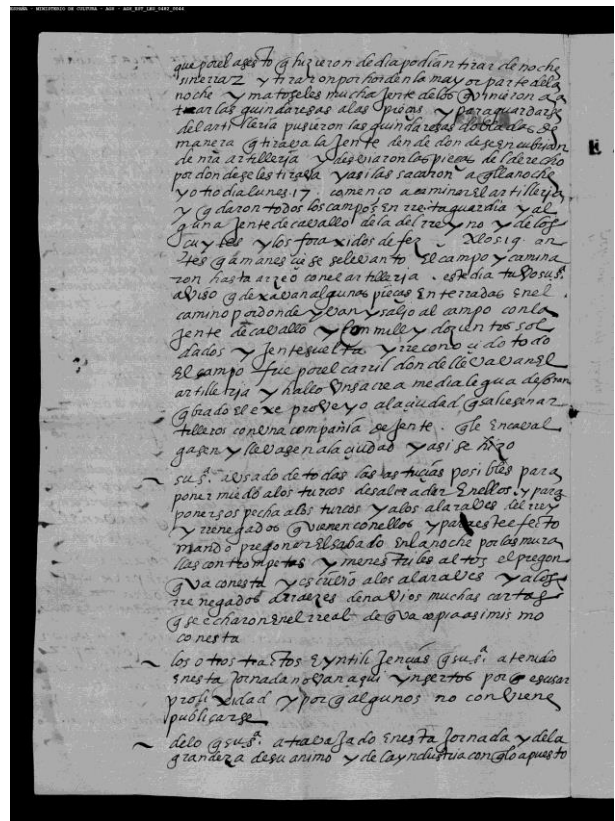 ESPAÑA - MINISTERIO DE CULTURA - AGS - AGS_EST_LEG_0482_0666
que por el q hizieron de dia podian tirar de noche
sin errar y tiraron por horden la mayor parte dela
noche y mataseles mucha Jente delos q vinieron a
las quindaresas alas pieças y para guardarse
del artilleria pusieron las quindaresas dobladas de
manera q tirava la Jente dende donde se encubrian
de nra artilleria y desviaron las pieças del derecho
por donde se les tirava y asi las sacaron aqlla noche
y otro dia lunes .17. començo a caminar el artilleria
y qdaron todos los campos En rretaguardia y al
guna Jente de cavallo dela del rrey no y delos
y los foraxidos de fez . Alos .19. an
tes q amaneçiese se levanto El campo y camina
ron hasta arzeo con el artilleria . este dia tuvo su sª.
aviso q dexavan algunas pieças Enterradas Enel
camino por donde yvan y salio al campo conla
Jente de cavallo y con mill y dozientos sol
dados y Jente suelta y rreconoçido todo
El campo fue por el carril donde llevavan El
artilleria y hallo Un sacre a media legua de oran
qbrado el exe proveyo ala çiudad q saliesen ar
tilleros con Una compañia de Jente . qle Encaval
gasen y llevasen ala çiudad y asi se hizo
su sª. a usado de todas las astuçias posibles para
poner miedo alos turcos Enellos y para
poner sospecha alos turcos y alos alaraves del rrey
y rrenegados q vienen conellos y para este efecto
mando pregonar El sabado En la noche por las mura
llas con trompetas y menestriles altos el pregon
q va conesta y escrivio alos alaraves y alos
rrenegados arraezes de navios muchas cartas
q se echaron Enel rreal de q va copia asi mismo
conesta
los otros tractos E yntiliJençias q su sª. a tenido
En esta Jornada no van aqui ynsertos por q escusar
prolixidad y por q algunos no conviene
publicarse
delo q su sª. a travajado En esta Jornada y dela
grandeza de su animo y dela yndustria con qlo a puesto